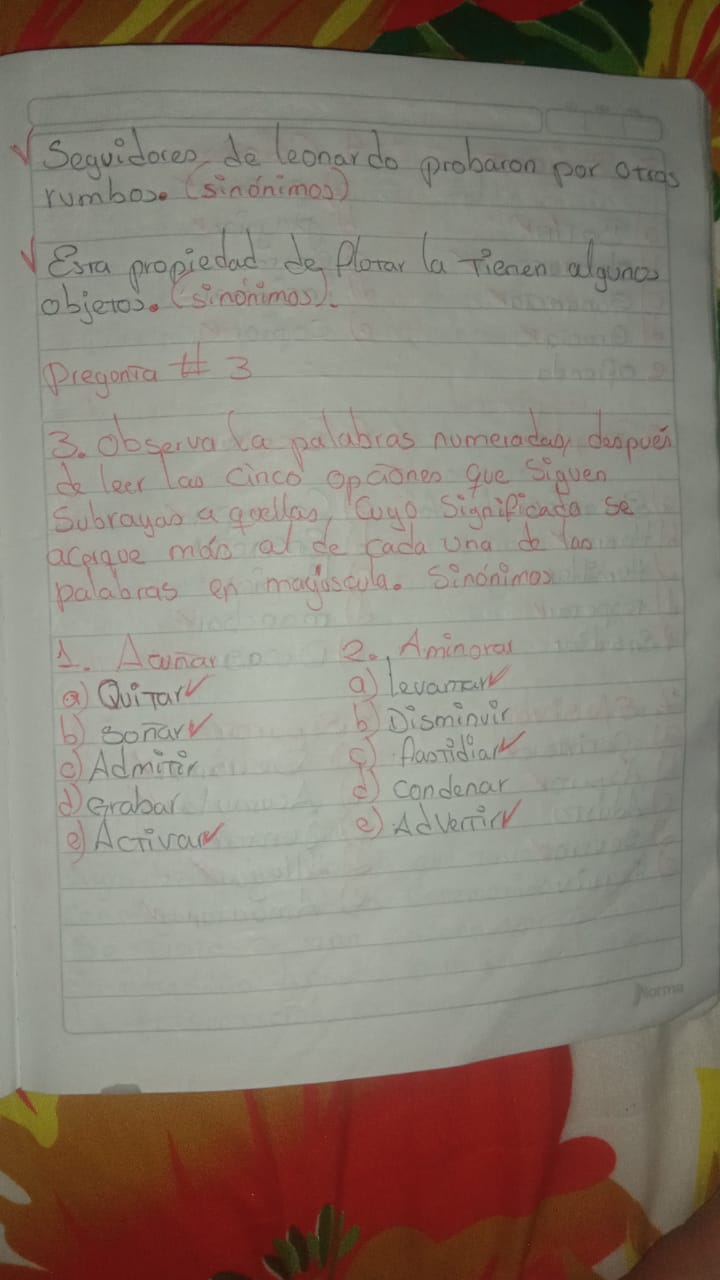 ✓ Seguidores de leonardo probaron por otros
rumbos. (sinónimos)
✓ Esta propiedad de flotar la tienen algunos
objetos. (sinónimos).
Pregonta # 3
3. Observa la palabras numeradas, después
de leer las cinco opciones que siguen
Subrayas a quellas, cuyo significado se
acerque más al de cada una de las
palabras en mayúscula. Sinónimos
1. Acuñar
a) Quitar ✓
b) Soñar ✓
c) Admitir
d) Grabar
e) Activar ✓
2. Aminorar
a) levantar ✓
b) Disminuir
c) fastidiar ✓
d) Condenar
e) Advertir ✓
Norma